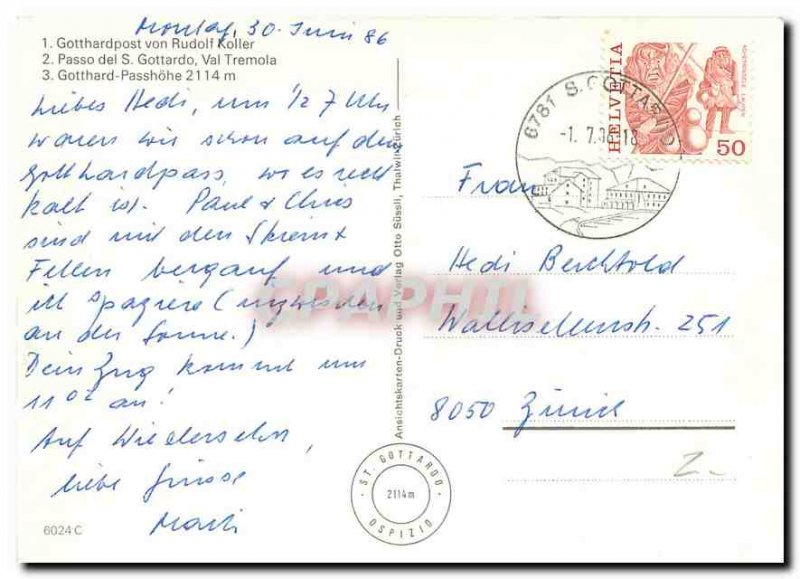 Montag, 30. Juni 86
1. Gotthardpost von Rudolf Koller
2. Passo del S. Gottardo, Val Tremola
3. Gotthard-Passhöhe 2114 m
Liebes Hedi, um 1/2 7 Uhr
waren wir schon auf dem
Gotthardpass, wo es recht
kalt ist. Paul + Chris
sind mit den Skiern +
Fellen bergauf und
ich spaziere (inzwischen
an der Sonne.)
Dein Zug kommt um
11 02 an!
Auf Wiedersehn,
liebe Grüsse
6024 C
Ansichtskarten-Druck und Verlag Otto Süssli, Thalwil-Zürich
ST. GOTTARDO
2114 m
OSPIZIO
6781 S. GOTTARDO
-1. 7. 86-18
HELVETIA
50
Frau
Hedi Berchtold
Wallisellenstr. 251
8050 Zürich
Z.
GRAPHIL